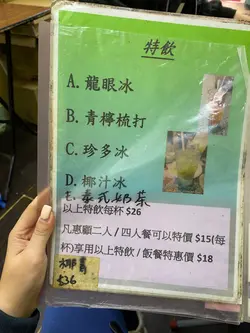 特飲
A. 龍眼冰
B. 青檸梳打
C. 珍多冰
D. 椰汁冰
E. 泰式奶茶
以上特飲每杯 $26
凡惠顧二人 / 四人餐可以特價 $15(每
杯)享用以上特飲 / 飯餐特惠價 $18
椰青
$36